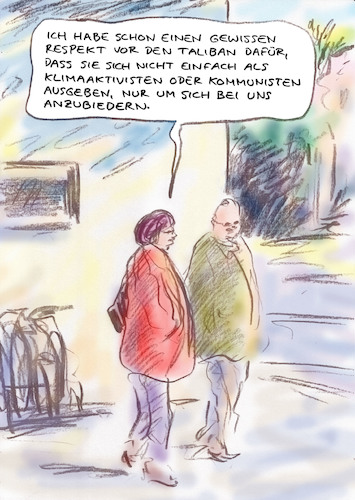 ICH HABE SCHON EINEN GEWISSEN
RESPEKT VOR DEN TALIBAN DAFÜR,
DASS SIE SICH NICHT EINFACH ALS
KLIMAAKTIVISTEN ODER KOMMUNISTEN
AUSGEBEN, NUR UM SICH BEI UNS
ANZUBIEDERN.